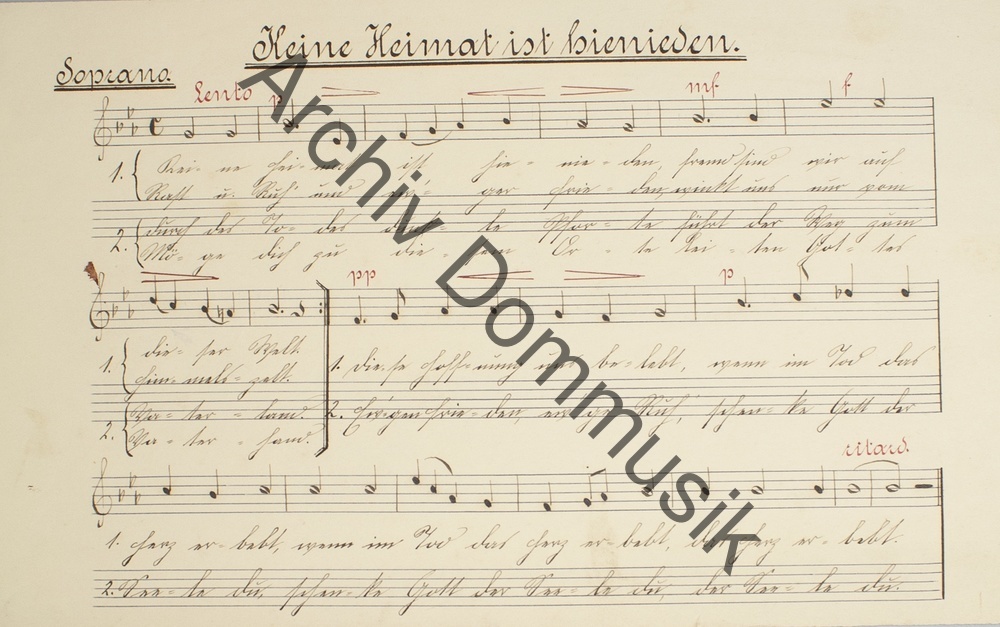 Keine Heimat ist hienieden.
Soprano.
Lento p mf f
1. { Kei- ne Hei- mat ist hie- nie- den, fremd sind wir auf
Rast u. Ruh' und ew- ger Frie- den, winkt uns nur vom
2. { durch des To- des dunk- le Pfor- te führt der Weg zum
Mö- ge dich zu die- sem Or- te lei- ten Got- tes
pp p
1. { die- ser Welt. 1. Die-se Hoff-nung uns be- lebt, wenn im Tod das
Him-mels-zelt.
2. { Va- ter- land. 2. Ew'gen Frie-den, ew'ge Ruh', schen-ke Gott der
Va- ter- hand.
ritard.
1. Herz er-bebt, wenn im Tod das Herz er-bebt, das Herz er-bebt.
2. See-le du, schen-ke Gott der See-le du, der See-le du.
Archiv Dommusik